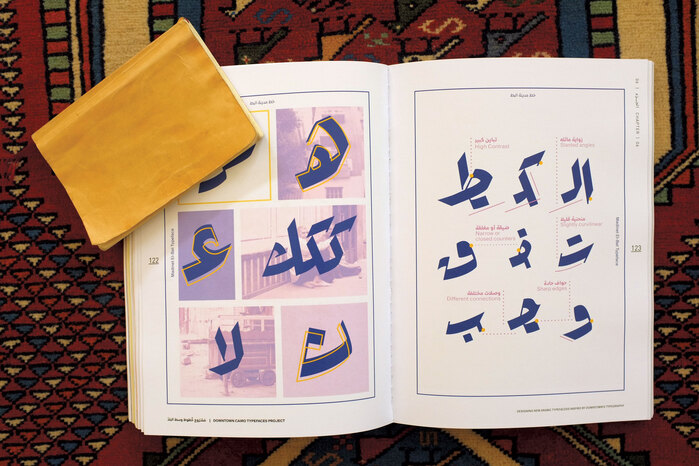 خط مدينة البط
هـ
ع
تتك
لا
ن
122
Madinet El-Bat Typeface
مشروع خطوط وسط البلد | DOWNTOWN CAIRO TYPEFACES PROJECT
خط مدينة البط
CHAPTER | 04
زواية مائلة
Slanted angles
تباين كبير
High Contrast
منحنية قليلا
Slightly curvilinear
ضيقة أو مغلقة
Narrow or
closed counters
ت ف ق
حواف حادة
Sharp edges
وصلات مختلفة
Different connections
و جـ ب
Madinet El-Bat Typeface
123
DESIGNING NEW ARABIC TYPEFACES INSPIRED BY DOWNTOWN'S TYPOGRAPHY